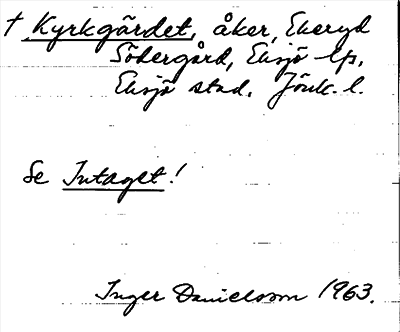 † Kyrkgärdet, åker, Ekeryd
Södergård, Eksjö lfs,
Eksjö stad. Jönk. l.
Se Intaget!
Inger Danielsson 1963.